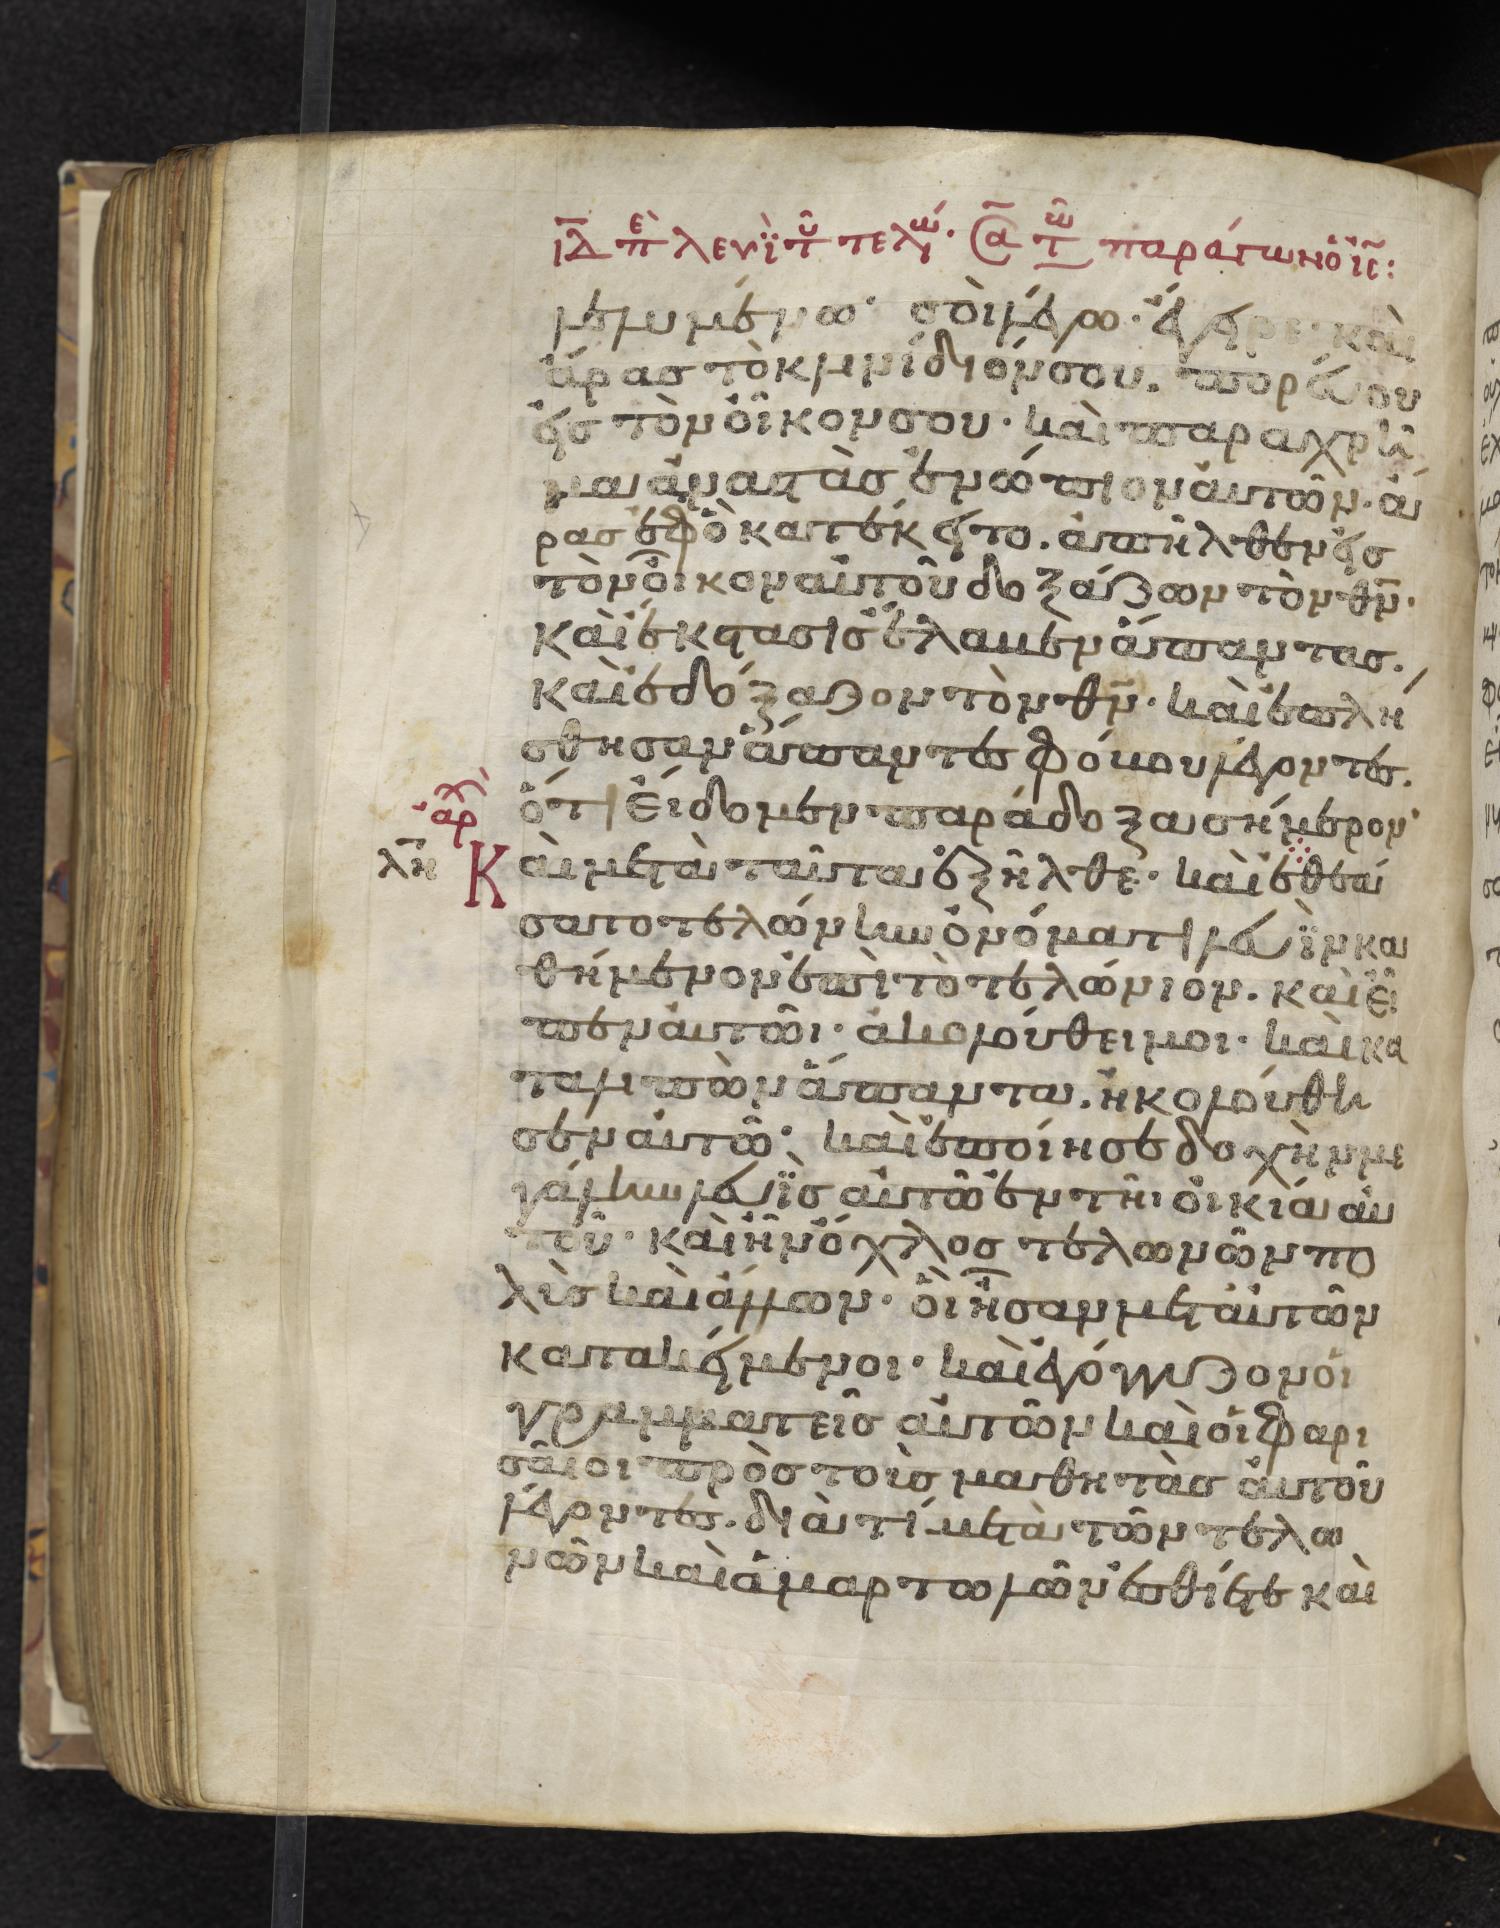 ιδ πε λευϊ τῦ τελω· ϛα τω παράγων ὁ ις:
μενμένω· σοὶ λέγω· ἔγειρε· καὶ
ἄρας τὸ κλινίδιόν σου. πορεύου
εἰς τὸν οἶκον σου· καὶ παραχρῆ
μα ἀναστὰς ἐνώπιον αὐτῶν· ἄ
ρας ἐφ ὃ κατέκειτο. ἀπῆλθεν εἰς
τὸν οἶκον αὐτοῦ δοξάζων τὸν θν·
καὶ ἔκστασις ἔλαβεν ἅπαντας.
καὶ ἐδόξαζον τὸν θν· καὶ ἐπλή
σθησαν ἅπαντες φόβου λέγοντες.
ὅτι εἴδομεν παράδοξα σήμερον·
αρχ
λη Καὶ μετὰ ταῦτα ἐξῆλθε· καὶ ἐθεά
σατο τελώνην ὀνόματι λευϊν κα
θήμενον ἐπὶ τὸ τελώνιον. καὶ εἶ
πεν αὐτῶι· ἀκολούθει μοι· καὶ κα
ταλιπὼν ἅπαντα. ἠκολούθη
σεν αὐτῶ· καὶ ἐποίησε δοχὴν με
γάλην λευϊς αὐτῶ ἐν τῆι οἰκία αὐ
τοῦ· καὶ ἦν ὄχλος τελωνῶν πο
λὺς καὶ ἄλλων· οἳ ἦσαν μετ αὐτῶν
κατακείμενοι· καὶ ἐγόγγυζον οἱ
γραμματεῖς αὐτῶν καὶ οἱ φαρι
σαῖοι πρὸς τοὺς μαθητὰς αὐτοῦ
λέγοντες. διὰ τί μετὰ τῶν τελω
νῶν καὶ ἁμαρτωλῶν ἐσθίετε καὶ